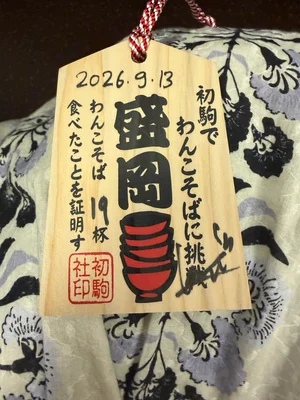 2026.9.13
初駒で
わんこそばに挑戦
盛岡
わんこそば 19杯
食べたことを証明す
初駒
社印